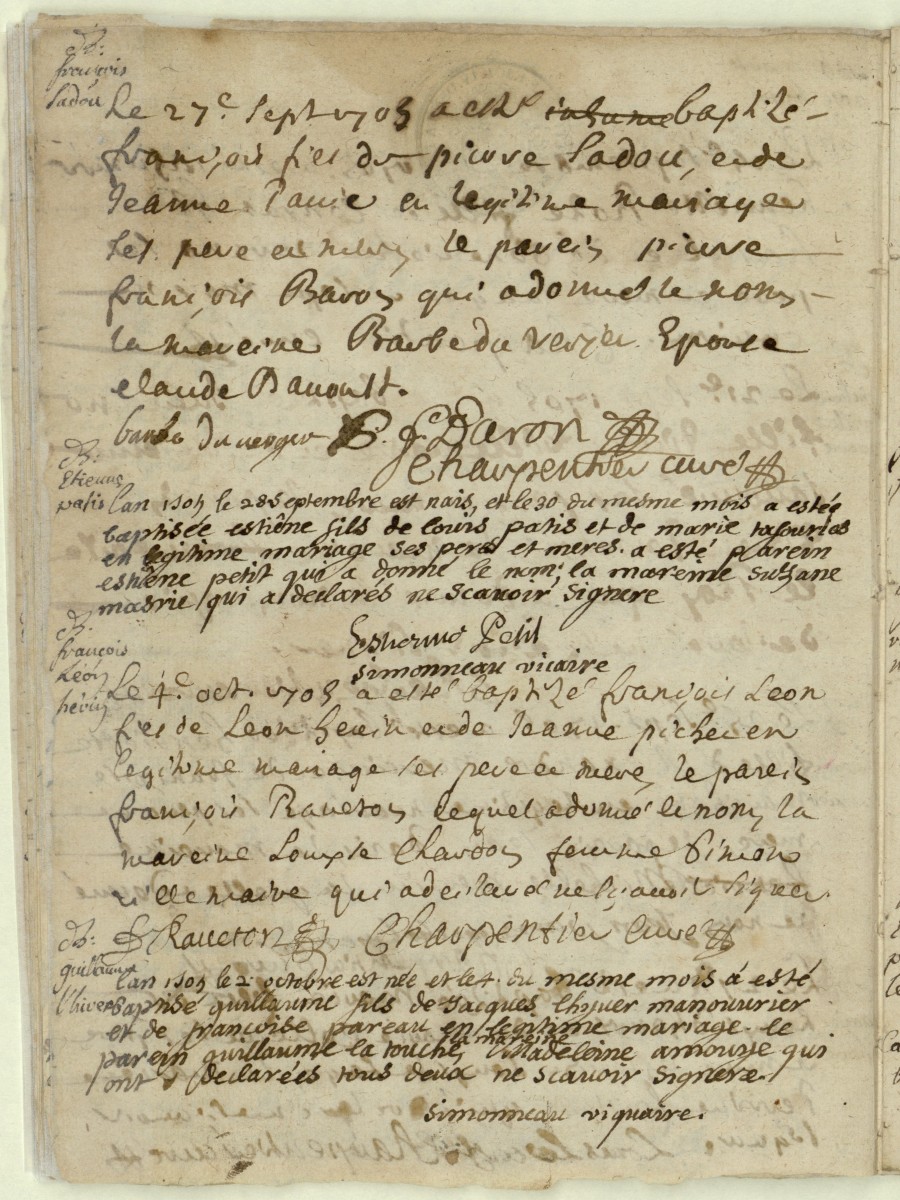 B:
françois
Sadou
Le 27e Sept 1705 a esté inhumé baptizé
françois fies de pierre Sadou, et de
Jeanne en legitime mariage
ses pere et mere, le parein pierre
françois Baron qui a donné le nom,
la mareine Barbe du Verger Epouse
claude Banoult.
barbe Duverger P. f Baron
Charpentier curé
B:
Etienne
patis
lan 1705 le 28 septembre est nais, et le 30 du mesme mois a estée
baptisée estiêne fils de louis patis et de marie
en legitime mariage ses peres et meres. a esté parein
estiêne petit qui a donné le nom; la mareine Suzane
masrie qui a declarés ne scavoir signere
Estienne Petit
simonneau vicaire
B.
françois
Léon
hévin
Le 4e oct. 1705 a esté baptizé françois Leon
fies de Leon hevin et de Jeanne picher en
legitime mariage ses pere et mere, le parein
françois Raveton lequel a donné le nom, la
mareine Louyse Chardon femme Simon
villemaire qui a declaré ne sçavoir signer
f Raveton Charpentier curé
B:
guillaume
l'hiver
lan 1705 le 2 octobre est née et le 4 du mesme mois á esté
baptisé guillaume fils de Jacques lhyver manouurier
et de françoise pareau en legitime mariage. le
parein guillaume la touche, la mareine Madeleine amouye qui
ont declarées tous deux ne scavoir signere.
simonneau viquaire.